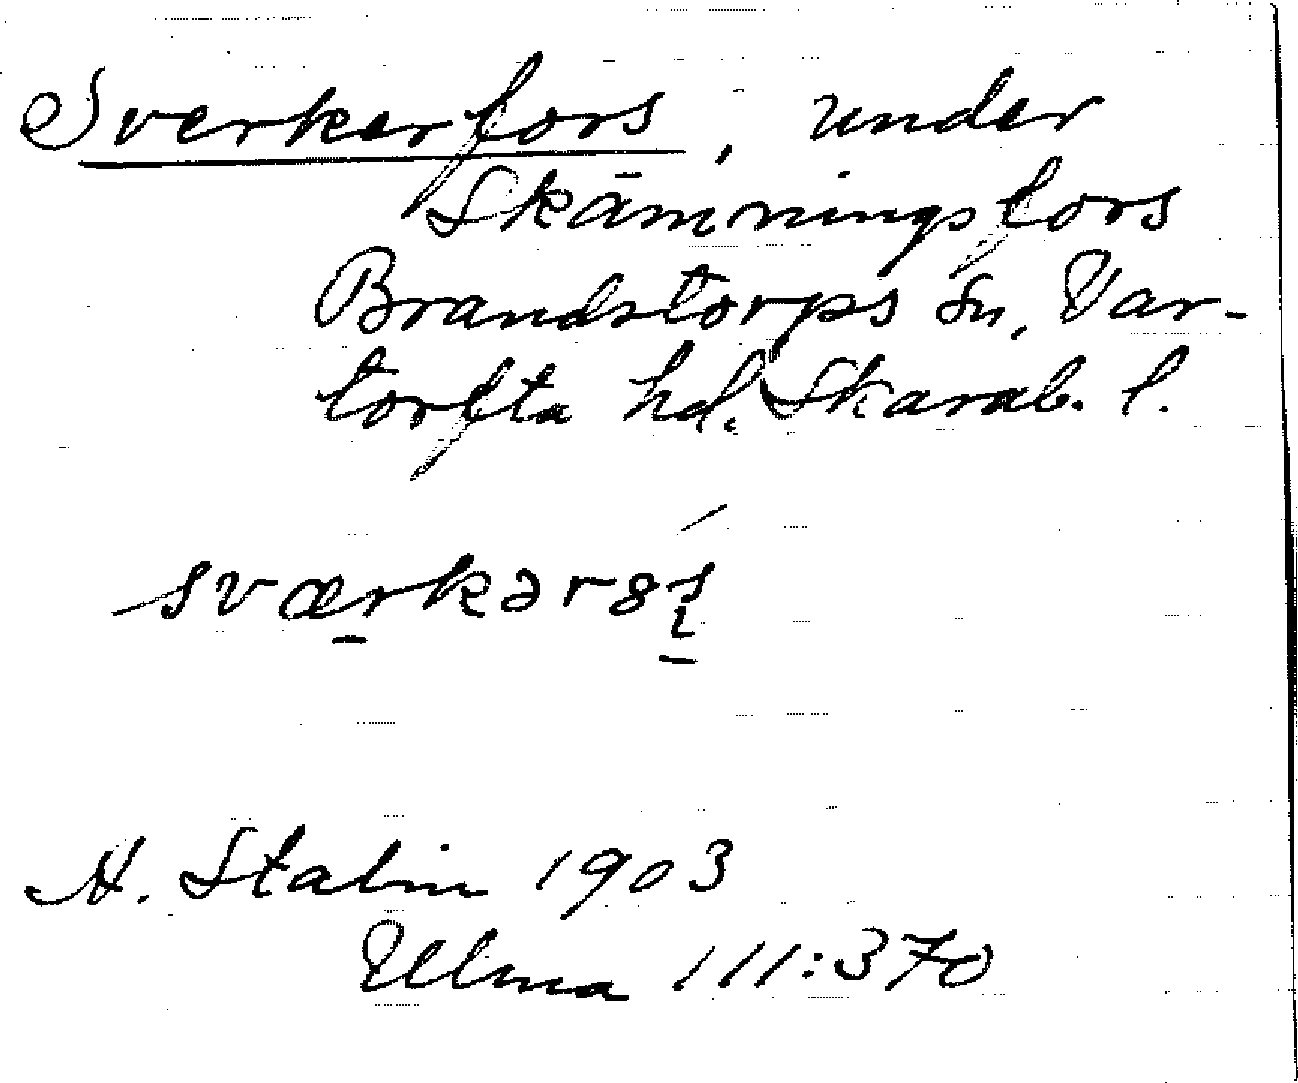 Sverkerfors, under
Skämningsfors
Brandstorps sn, Var-
tofta hd. Skarab. l.
A. Stalin 1903
Ulma 111:370